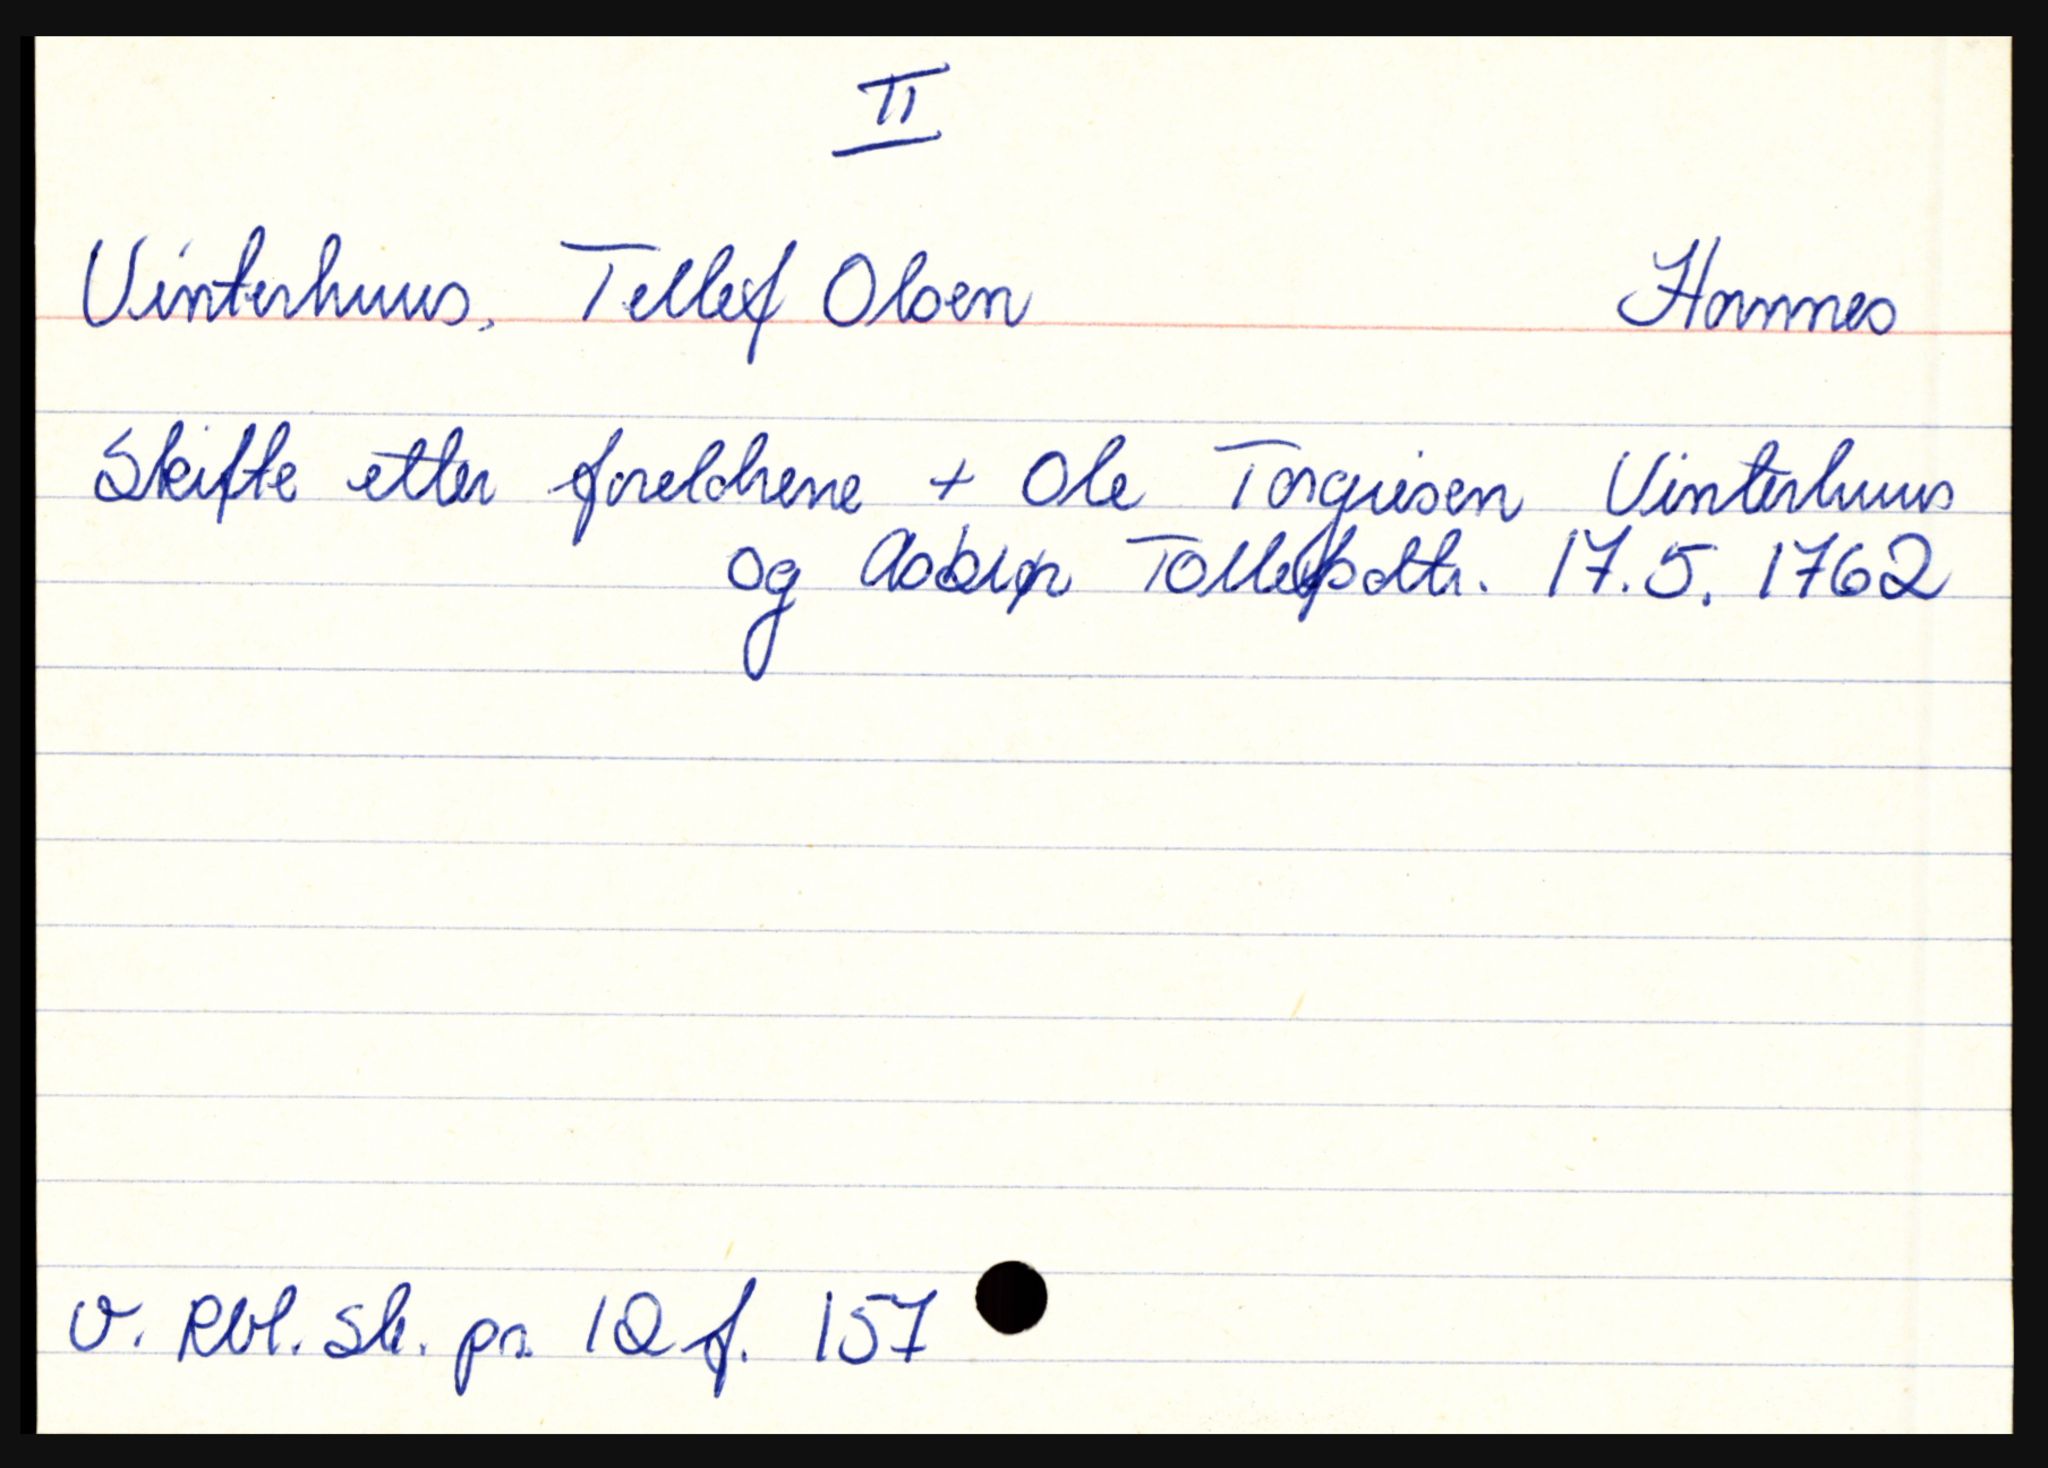 II
Vinterhuus, Tellef Olsen Hommes
Skifte etter foreldrene + Ole Torgrisen Vinterhuus
og Asbiør Tollefsdtr. 17.5. 1762
v. Rbl. sk. pr. 12 f. 157